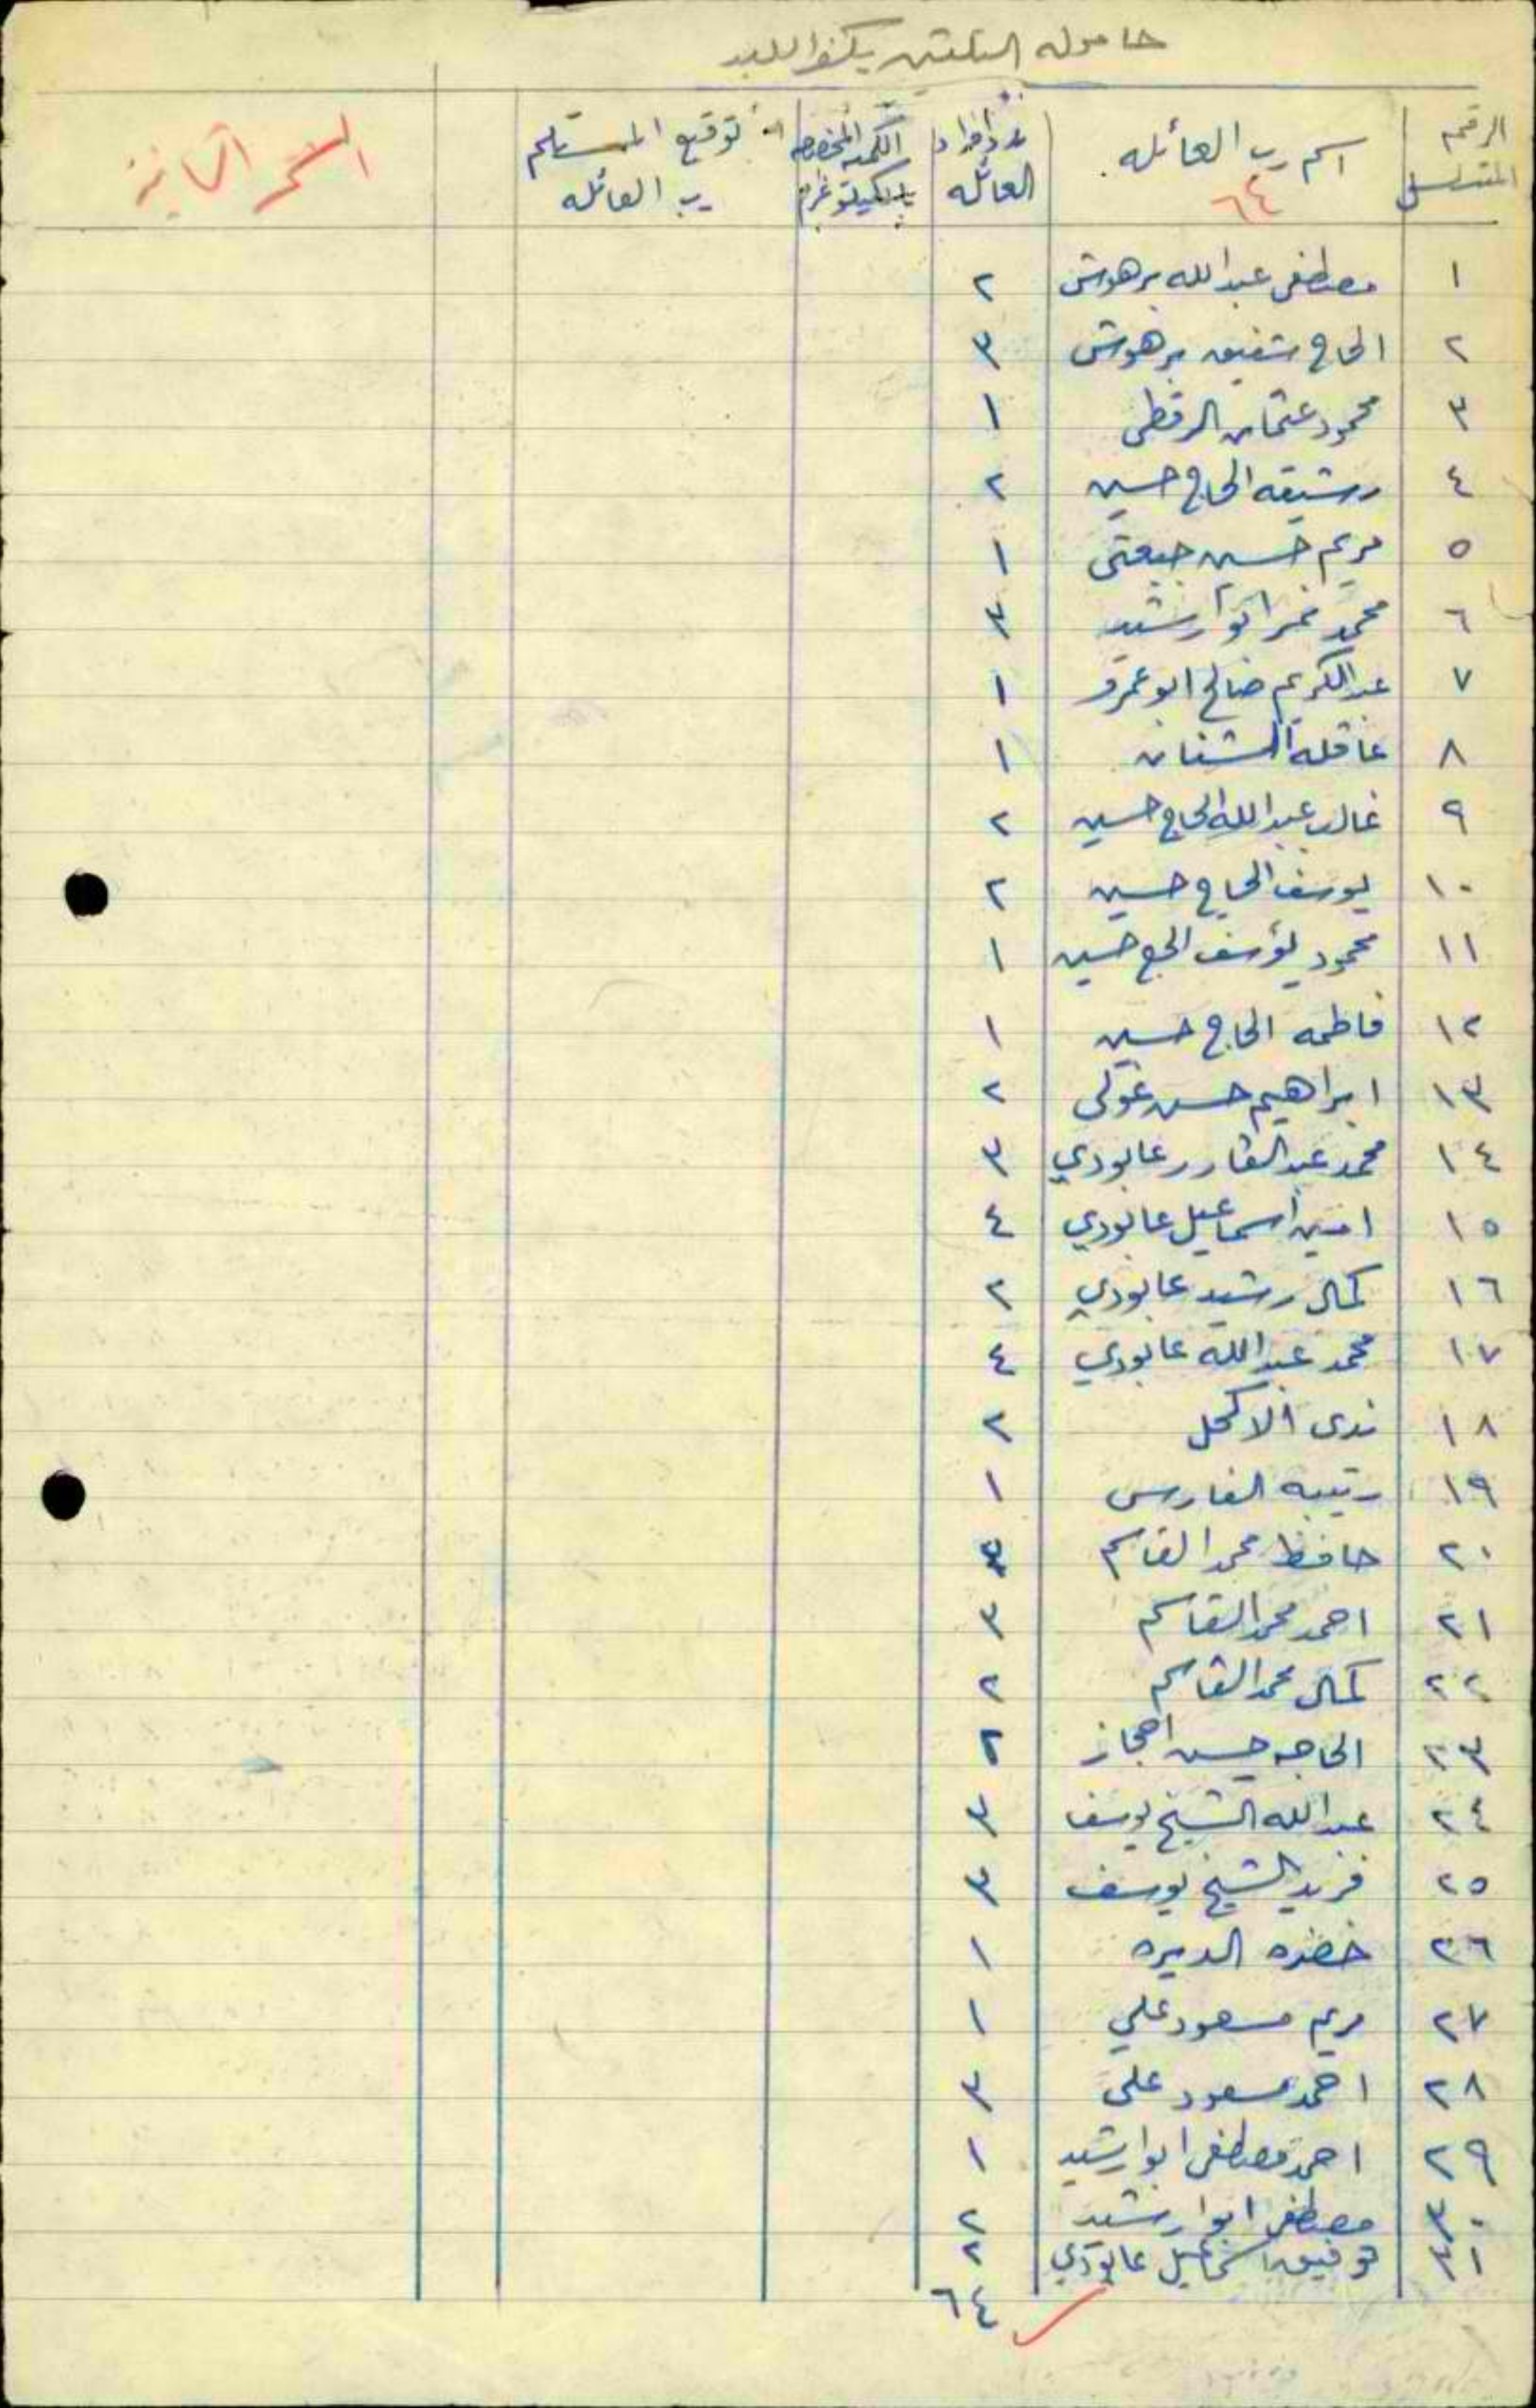 حامولة
الرقم المتسلسل | اسم رب العائله ٦٤ | عدد افراد العائله | الكميه المخصصه بالكيلو غرام | توقيع المستلم رب العائله | النسخه الثانية
١ | مصطفى عبدالله برهوش | ٢
٢ | الحاج شفيق برهوش | ٣
٣ | محمود عثمان الرفطى | ١
٤ | رشيقه الحاج حسين | ٢
٥ | مريم حسين | ١
٦ | محمد نمر ابو ارشيد | ٣
٧ | عبدالكريم صالح ابو عمرو | ١
٨ | عاقله الشنان | ١
٩ | غالب عبدالله الحاج حسين | ٢
١٠ | يوسف الحاج حسين | ٢
١١ | محمود يوسف الحج حسين | ١
١٢ | فاطمه الحاج حسين | ١
١٣ | ابراهيم حسن | ٢
١٤ | محمد عبدالقادر عابودي | ٣
١٥ | امين اسماعيل عابودي | ٤
١٦ | كمال رشيد عابودي | ٢
١٧ | محمد عبدالله عابودي | ٤
١٨ | ندى الاكحل | ٢
١٩ | رتيبه الفارس | ١
٢٠ | حافظ محمد القاسم
٢١ | احمد محمد القاسم | ٣
٢٢ | كمال محمد القاسم | ٢
٢٣ | الحاجه حسن | ٢
٢٤ | عبدالله الشيخ يوسف | ٣
٢٥ | فريد الشيخ يوسف | ٣
٢٦ | خضره الديره | ١
٢٧ | مريم مسعود علي | ١
٢٨ | احمد مسعود على | ٣
٢٩ | احمد مصطفى ابو ارشيد | ١
٣٠ | مصطفى ابو ارشيد | ٢
٣١ | توفيق اسماعيل عابودي | ٢
٦٤